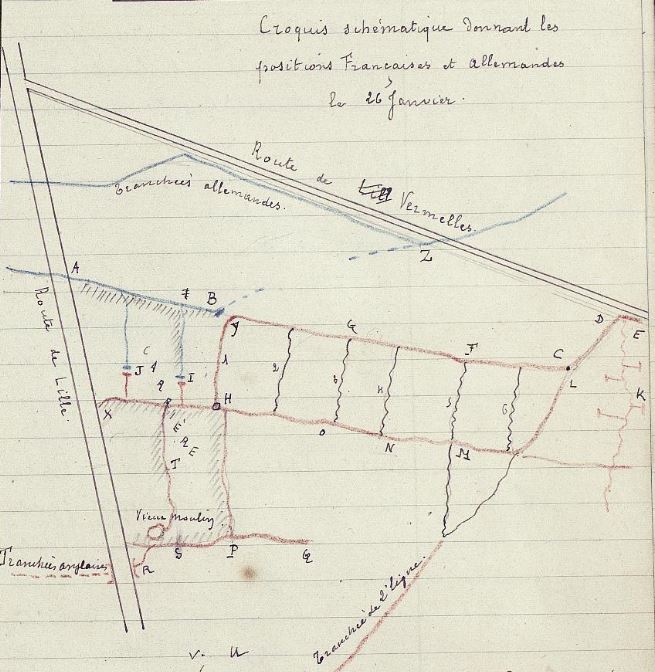 Croquis schématique donnant les
positions Françaises et allemandes
le 26 Janvier.
Route de Vermelles.
Tranchées allemandes.
Z
A
B
Route de Lille.
G
F
C
D
E
L
K
J
I
1
2
X
H
O
N
M
6
Vieux moulin
Tranchées anglaises
R
S
P
Q
Tranchée de 2e ligne.